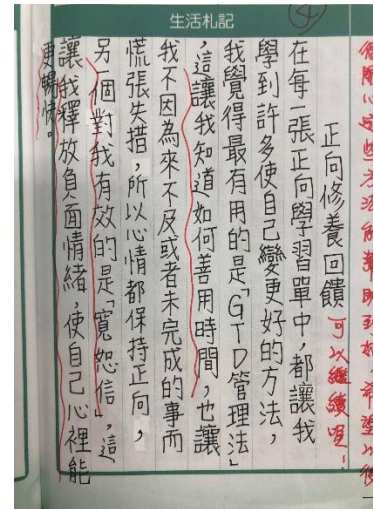 生活札記
4
很開心這些方法能幫助到妳,希望以後
可以繼續喔!
正向修養回饋
在每一張正向學習單中,都讓我
學到許多使自己變更好的方法,
我覺得最有用的是「GTD管理法」
,這讓我知道如何善用時間,也讓
我不因為來不及或者未完成的事而
慌張失措,所以心情都保持正向,
另一個對我有效的是「寬恕信」,這
讓我釋放負面情緒,使自己心裡能
更暢快。